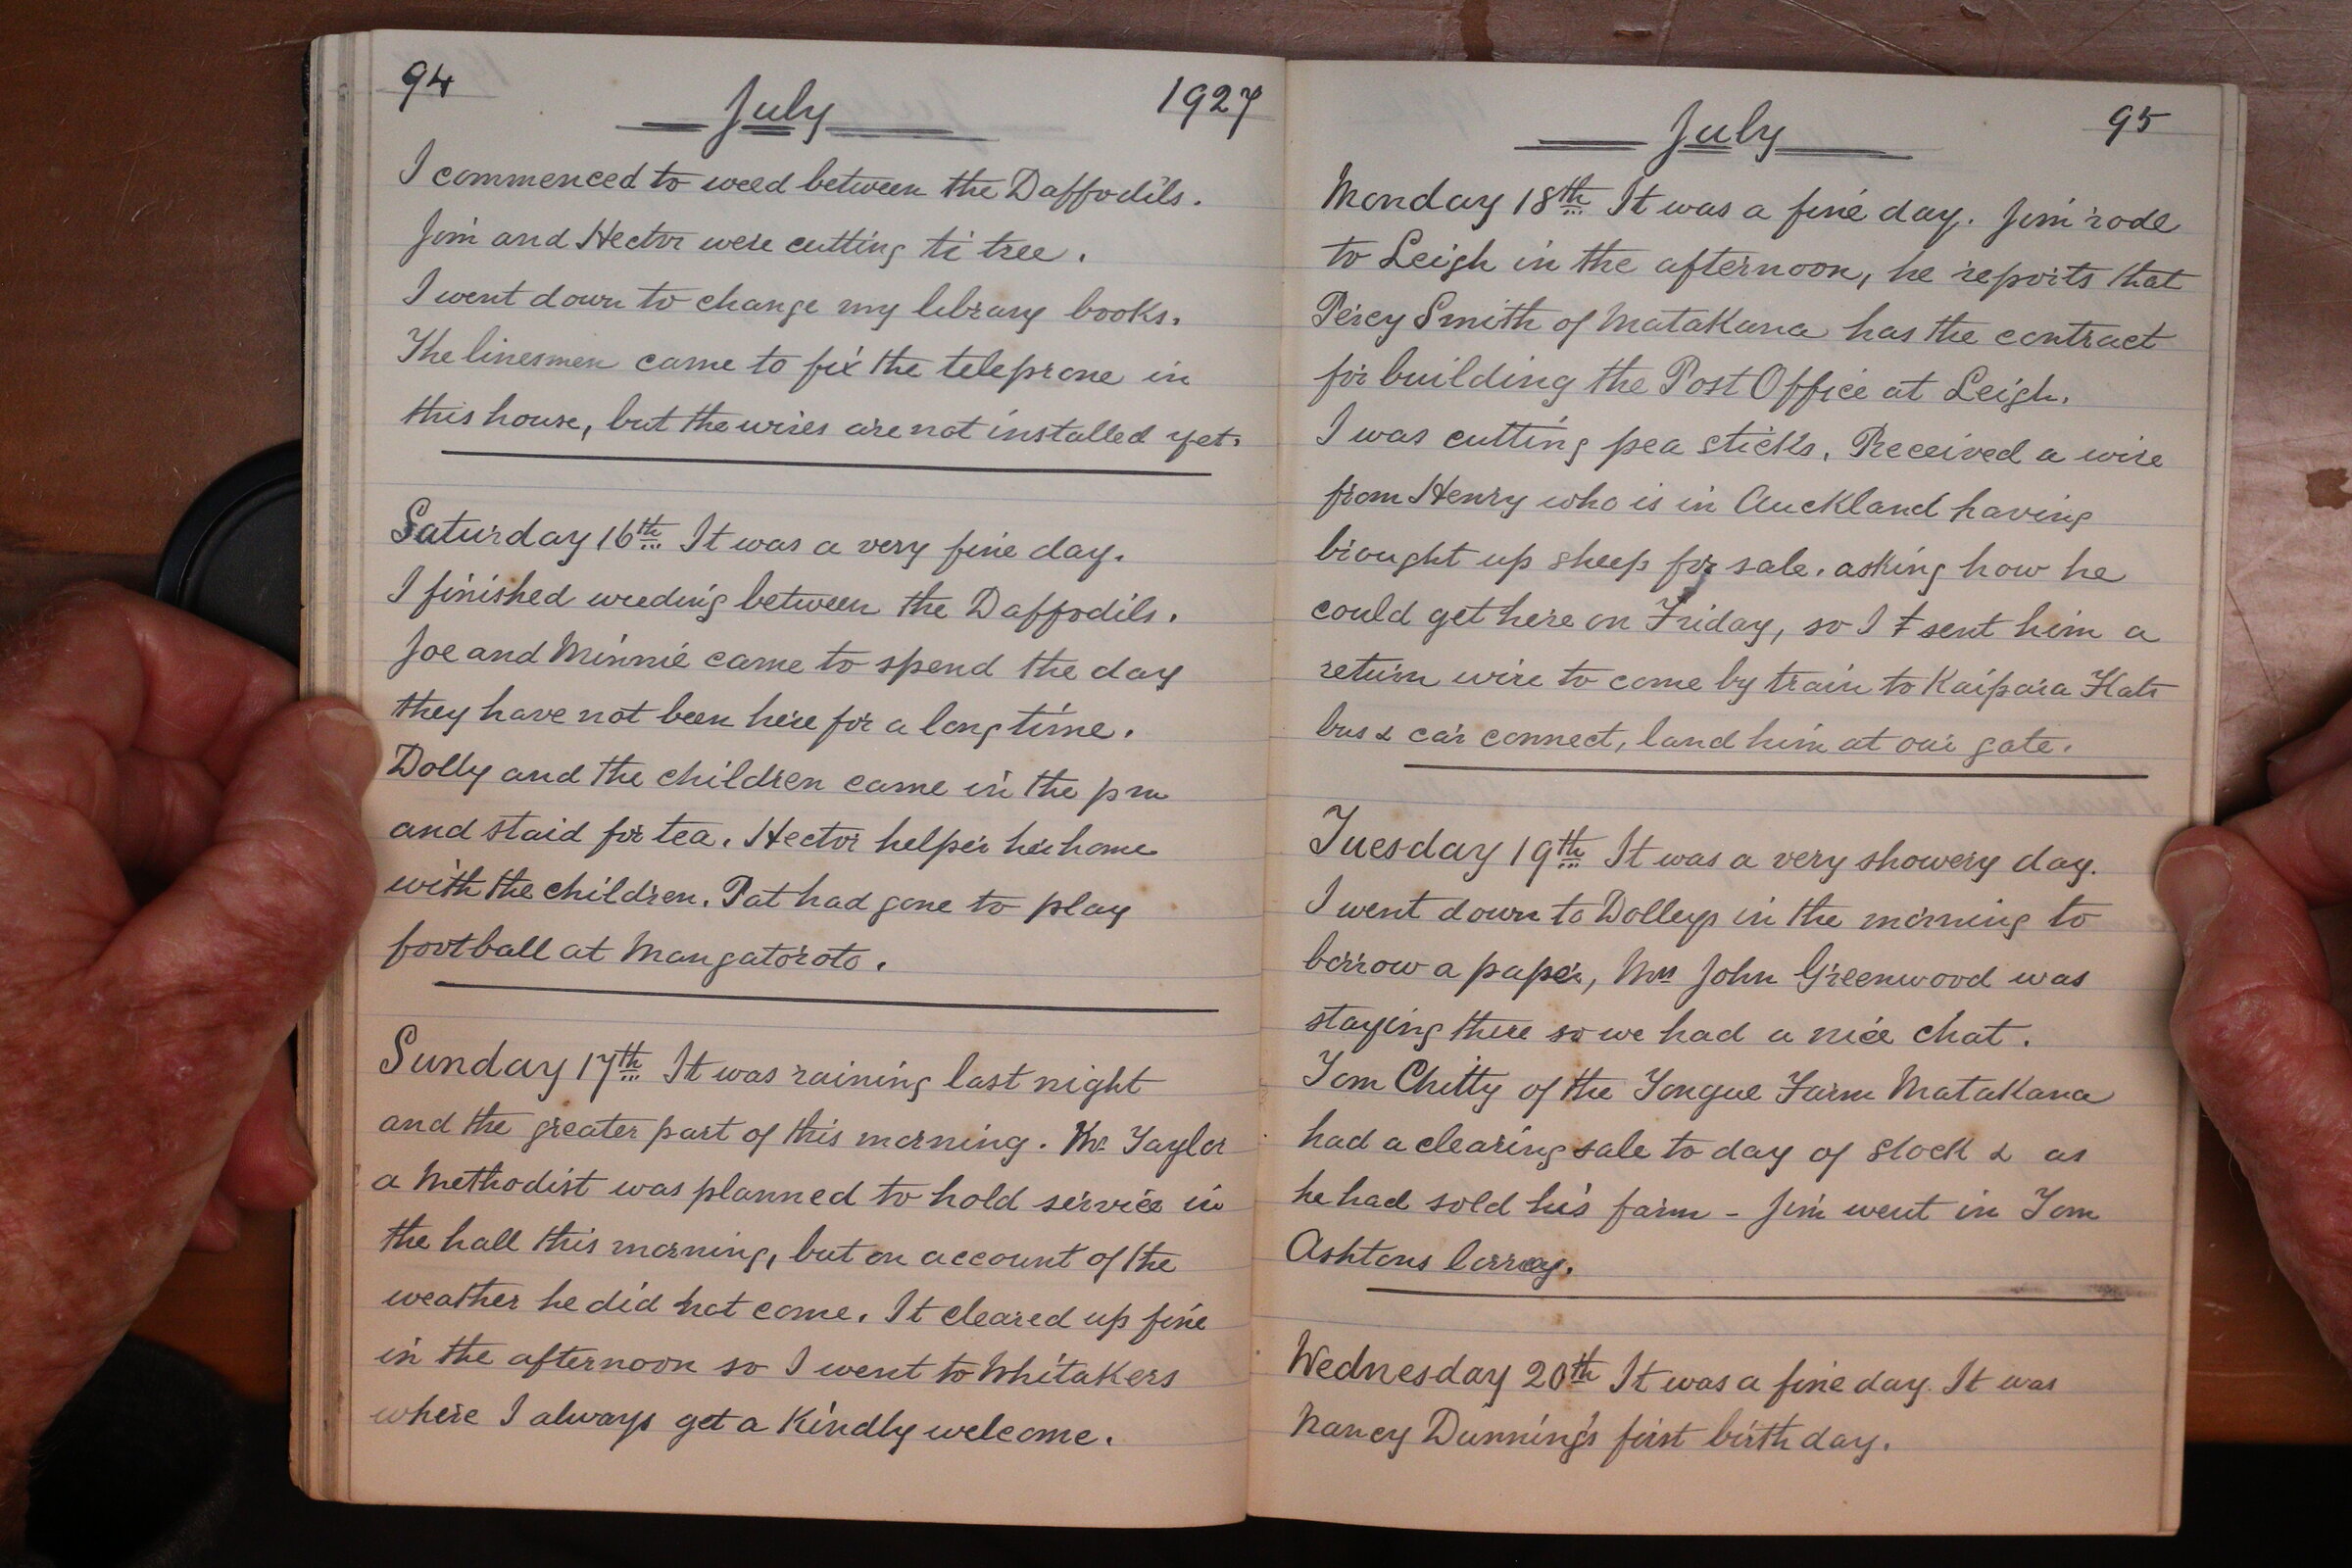 94
July
1927
I commenced to weed between the Daffodils.
Jim and Hector were cutting ti tree.
I went down to change my library books.
The linesmen came to fix the teleprone in
this house, but the wires are not installed yet.
Saturday 16th It was a very fine day.
I finished weeding between the Daffodils.
Joe and Minnie came to spend the day
they have not been here for a long time.
Dolly and the children came in the pm
and staid for tea. Hector helper her home
with the children. Pat had gone to play
football at Mangatoroto.
Sunday 17th It was raining last night
and the greater part of this morning. Mr Taylor
a Methodist was planned to hold service in
the hall this morning, but on account of the
weather he did not come. It cleared up fine
in the afternoon so I went to Whitakers
where I always get a Kindly welcome.
July
95
Monday 18th It was a fine day. Jim rode
to Leigh in the afternoon, he reports that
Percy Smith of Matakana has the contract
for building the Post Office at Leigh.
I was cutting pea sticks. Received a wire
from Henry who is in Auckland having
brought up sheep for sale. asking how he
could get here on Friday, so I sent him a
return wire to come by train to Kaipara Flats
bus & car connect, land him at our gate.
Tuesday 19th It was a very showery day.
I went down to Dollys in the morning to
borrow a paper, Mrs John Greenwood was
staying there so we had a nice chat.
Tom Chitty of the Tongue Farm Matakana
had a clearing sale to day of stock & as
he had sold his farm - Jim went in Tom
Ashtons lorry.
Wednesday 20th It was a fine day. It was
Nancy Dunning's first birthday.